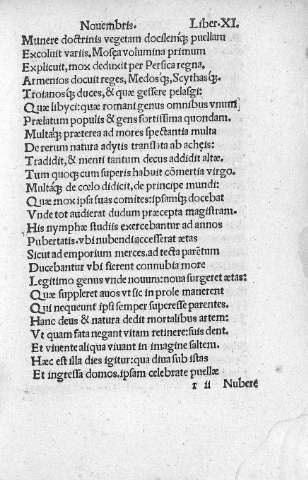 Nouembris. Liber.XI.
Munere doctrinis vegetam docilenq; puellam
Excoluit variis, Mosęa volumina primum
Explicuit, mox deduxit per Persica regna,
Armenios docuit reges, Medosq;, Scythasq;,
Troianosq; duces, & quæ gessere pelasgi:
Quæ libyci: quæ romani genus omnibus vnum
Prælatum populis & gens fortissima quondam.
Multaq; præterea ad mores spectantia multa
De rerum natura adytis translata ab acheis:
Tradidit, & menti tantum decus addidit altæ.
Tum quoq; cum superis habuit cōmertia virgo.
Multaq; de cœlo didicit, de principe mundi:
Quæ mox ipsa suas comites: ipsamq; docebat
Vnde tot audierat dudum præcepta magistram.
His nymphæ studiis exercebantur ad annos
Pubertatis. vbi nubendi accesserat ætas
Sicut ad emporium merces, ad tecta parētum
Ducebantur vbi fierent connubia more
Legitimo genus vnde nouum: noua surgeret ætas:
Quæ suppleret auos vt sic in prole manerent
Qui nequeunt ipsi semper superesse parentes.
Hanc deus & natura dedit mortalibus artem:
Vt quam fata negant vitam retinere: suis dent.
Et viuente aliqua viuant in imagine saltem.
Hæc est illa dies igitur: qua diua sub istas
Et ingressa domos. ipsam celebrate puellæ
r ii Nuberē